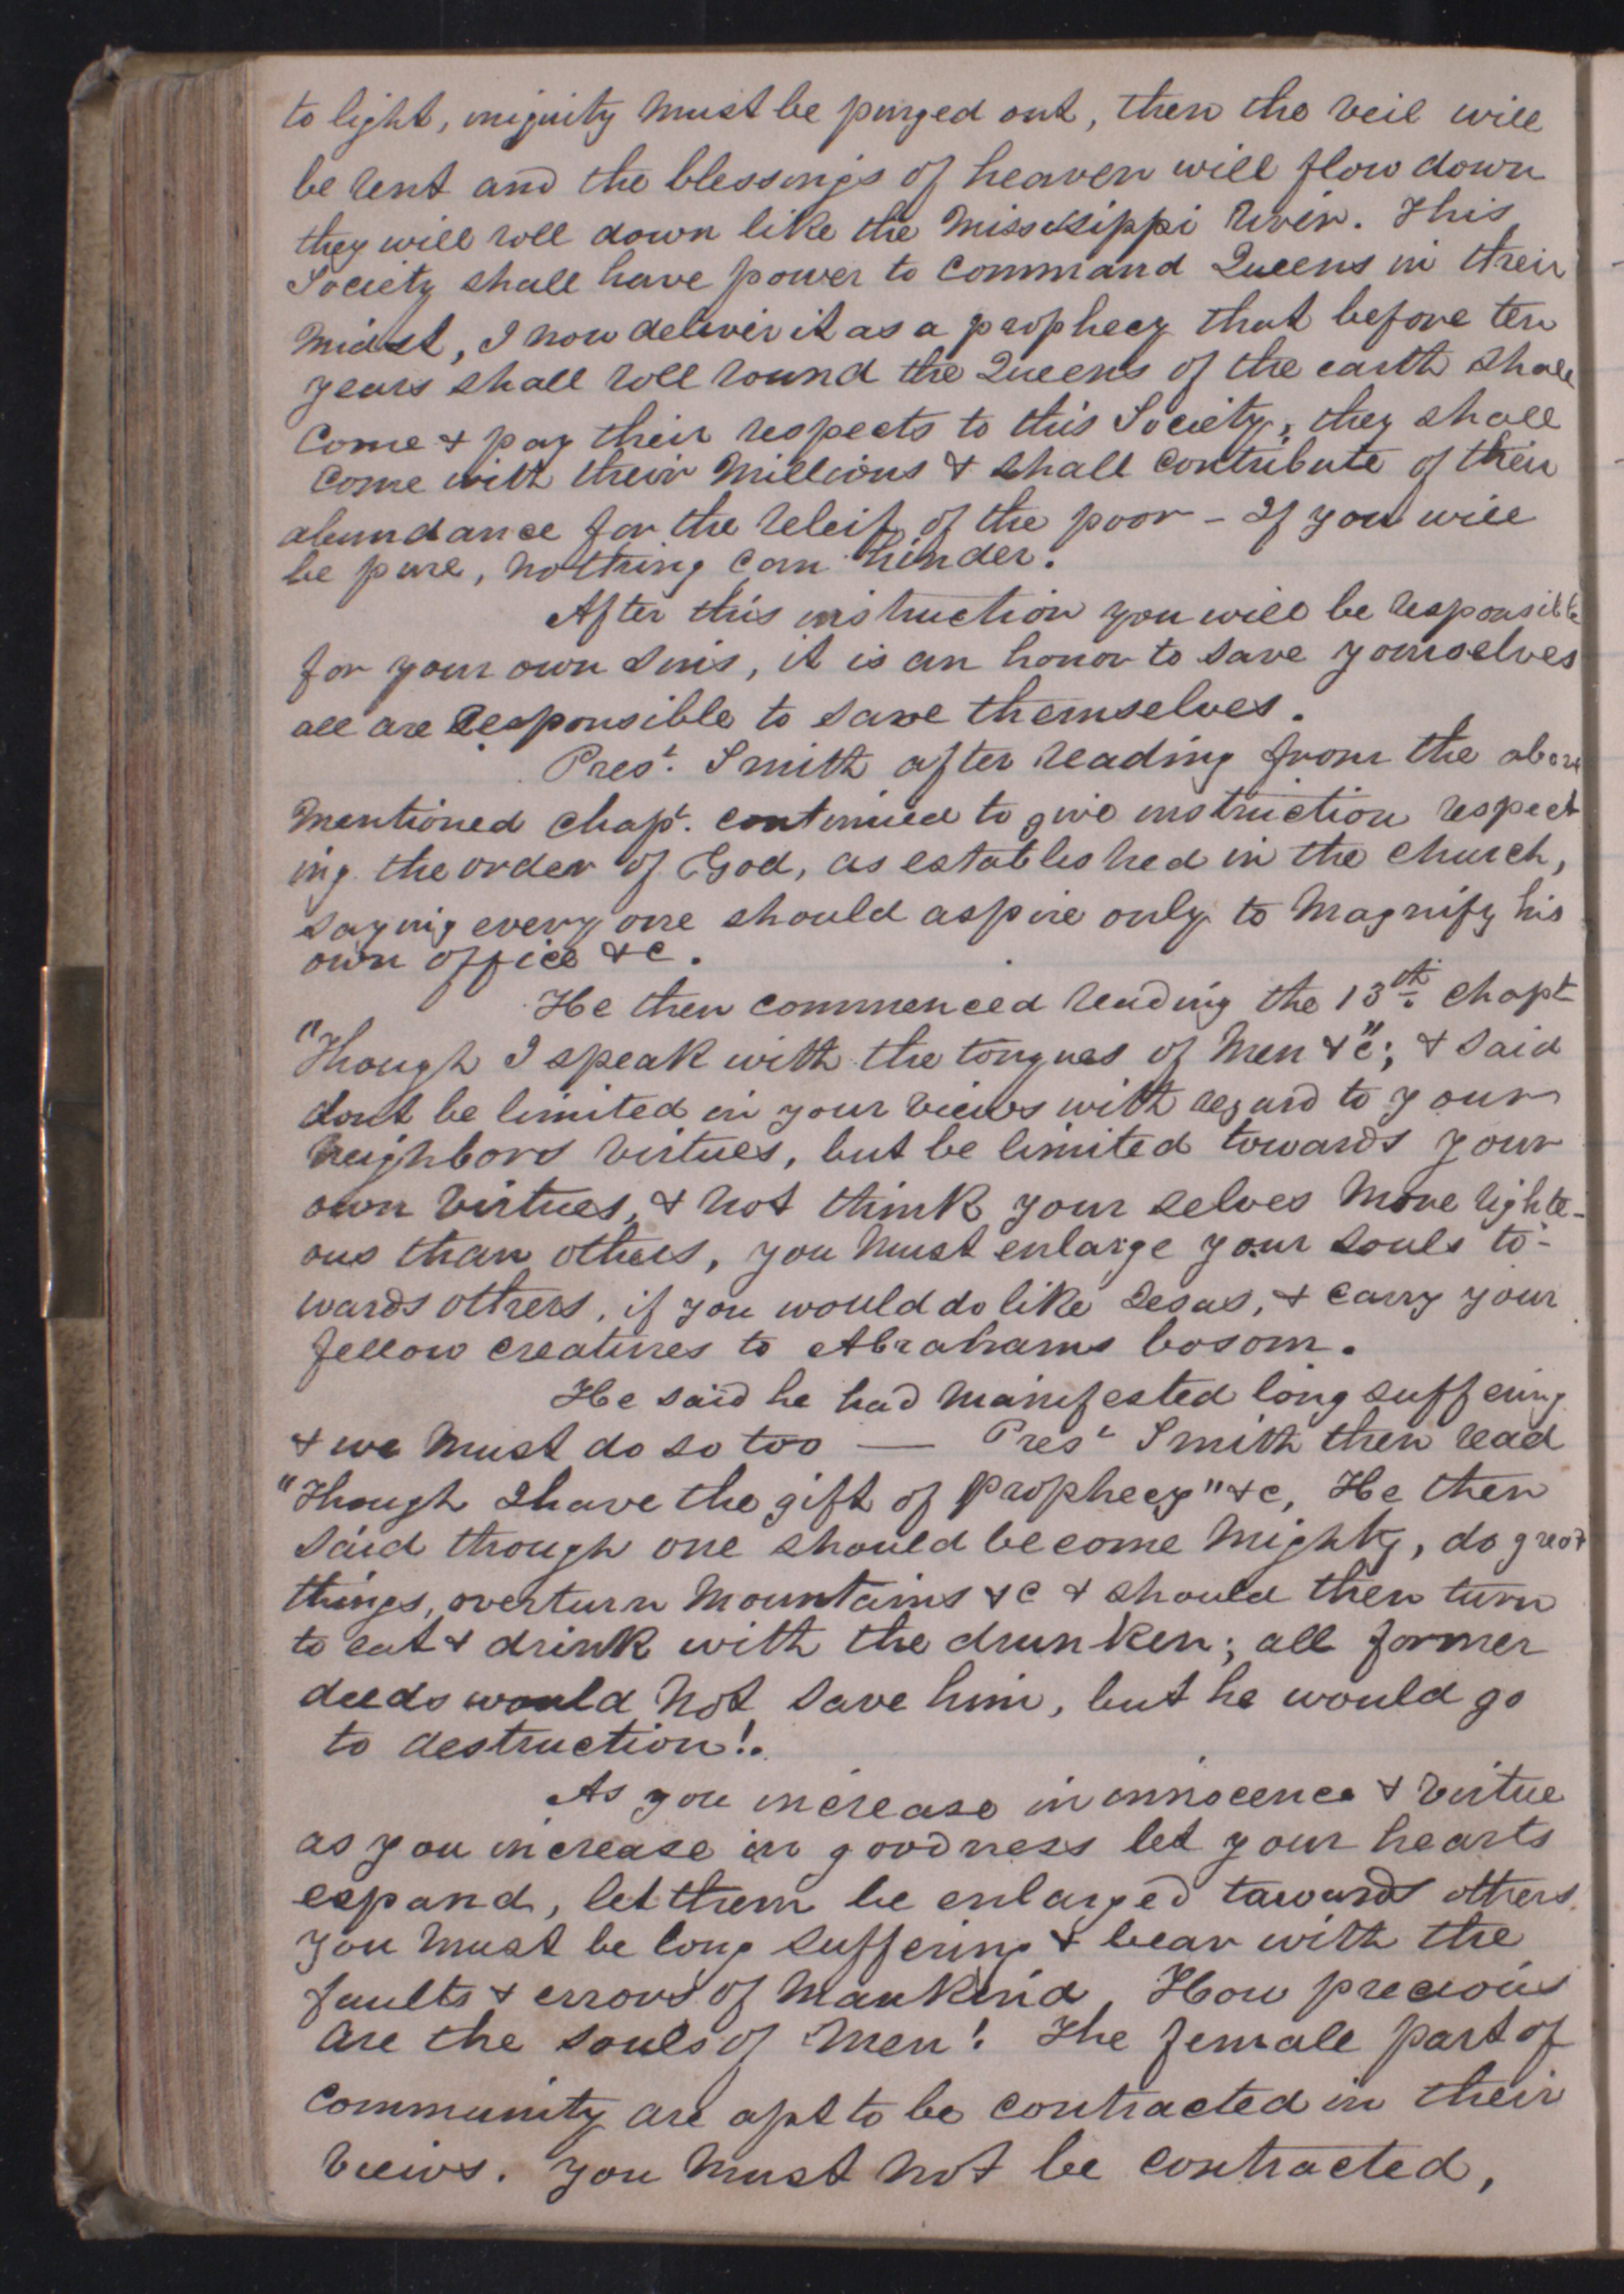 to light, iniquity must be purged out, then the veil will
be rent and the blessings of heaven will flow down
they will roll down like the Missisippi River. This
Society shall have power to command Queens in their
midst, I now deliver it as a prophecy that before ten
years shall roll round the Queens of the earth shall
come & pay their respects to this Society, they shall
come with their millions & shall contribute of their
abundance for the releif of the poor - If you will
be pure, nothing can hinder.
After this instruction you will be responsible
for your own sins, it is an honor to save yourselves
all are responsible to save themselves.
Prest. Smith after reading from the above
mentioned chapt. continued to give instruction respect
ing the order of God, as established in the church,
saying every one should aspire only to magnify his
own office &c.
He then commenced reading the 13th. chapt
"Though I speak with the tongues of men &c"; & said
dont be limited in your views with regard to your
neighbors virtues, but be limited towards your
own virtues, & not think your selves more righte-
ous than others, you must enlarge your souls to-
wards others, if you would do like Jesas, & carry your
fellow creatures to Abrahams bosom.
He said he had manifested long suffering
& we must do so too — Prest Smith then read
"Though I have the gift of prophecy" &c, He then
said though one should become mighty, do great
things, overturn mountains &c & should then turn
to eat & drink with the drunken; all former
deeds would not save him, but he would go
to destruction!.
As you increase in innocence & virtue
as you increase in goodness let your hearts
expand, let them be enlarged tawards others.
you must be long suffering & bear with the
faults & errors of mankind, How precious
are the souls of men! The female part of
community are apt to be contracted in their
views. you must not be contracted,